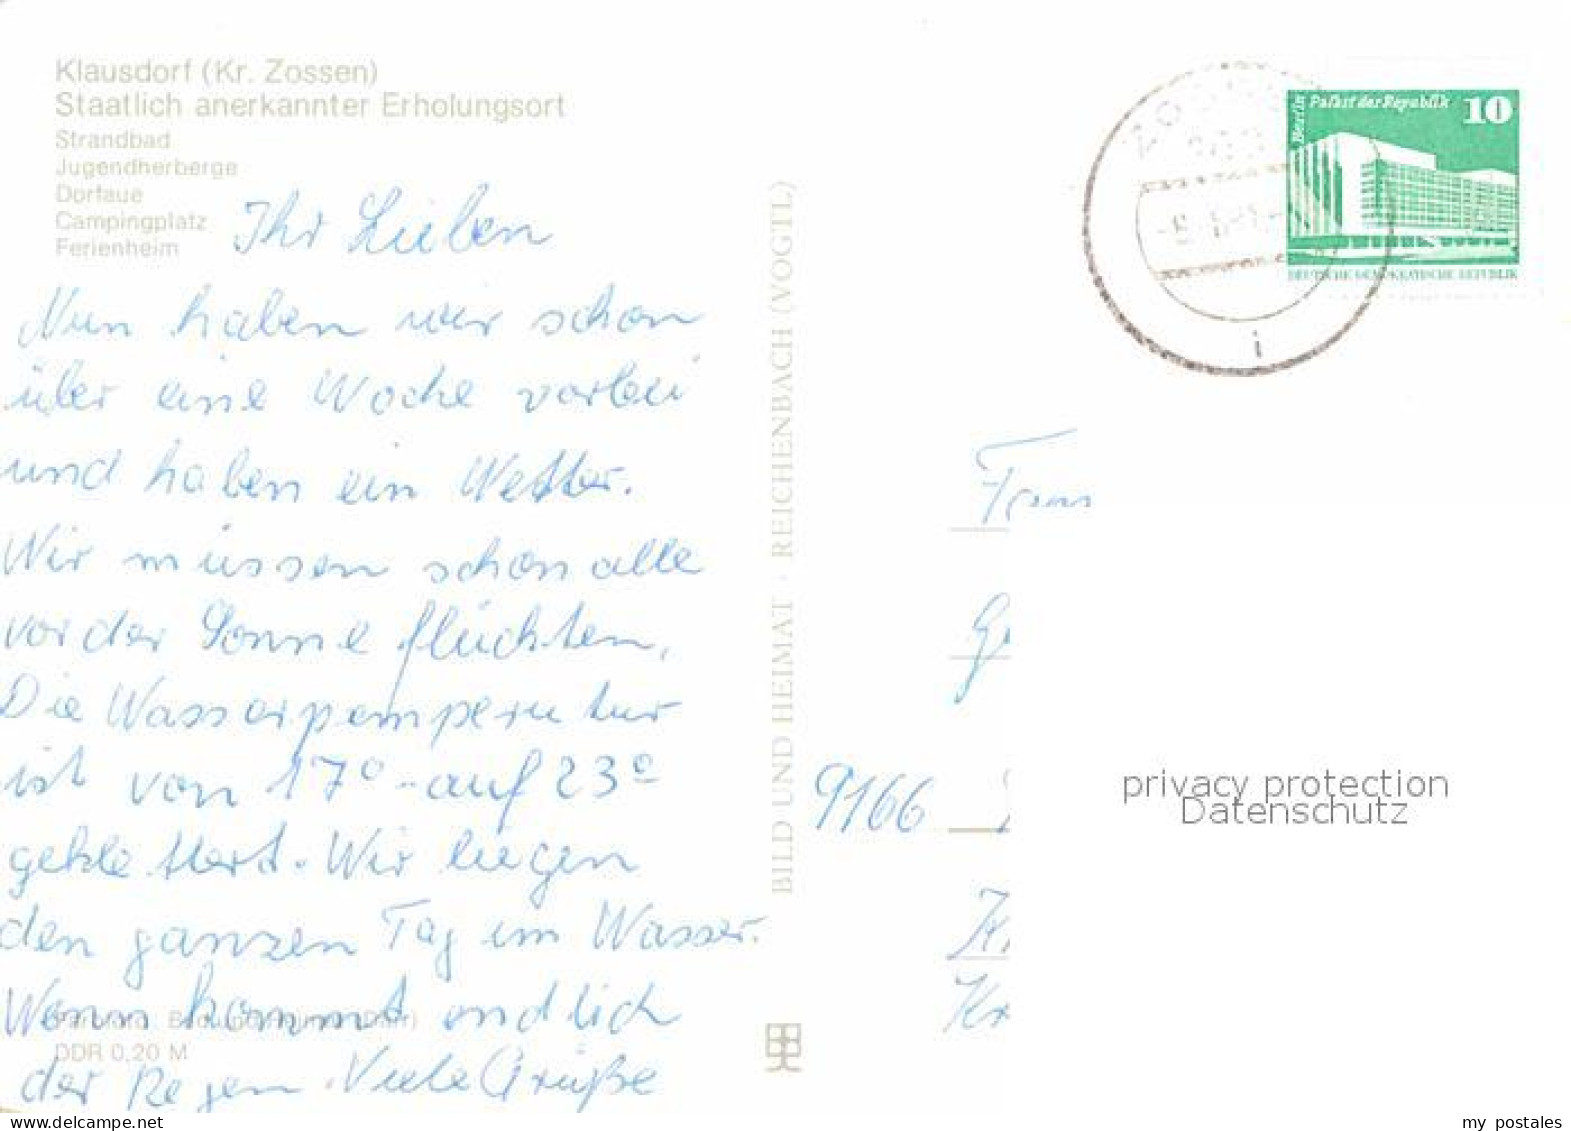 Klausdorf (Kr. Zossen)
Staatlich anerkannter Erholungsort
Strandbad
Jugendherberge
Dorfaue
Campingplatz
Ferienheim
Ihr Lieben
Nun haben wir schon
über eine Woche vorbei
und haben ein Wetter.
Wir müssen schon alle
vor der Sonne flüchten,
Die Wasserpemperatur
ist von 17° auf 23°
geklettert. Wir liegen
den ganzen Tag im Wasser.
Wann kommt endlich
der Regen. Viele Grüße
Farbfoto: Bild und Heimat (Darr)
DDR 0,20 M
BILD UND HEIMAT · REICHENBACH (VOGTL)
Berlin Palast der Republik 10
DEUTSCHE DEMOKRATISCHE REPUBLIK
i
Fam
9166
privacy protection
Datenschutz
my postales
www.delcampe.net